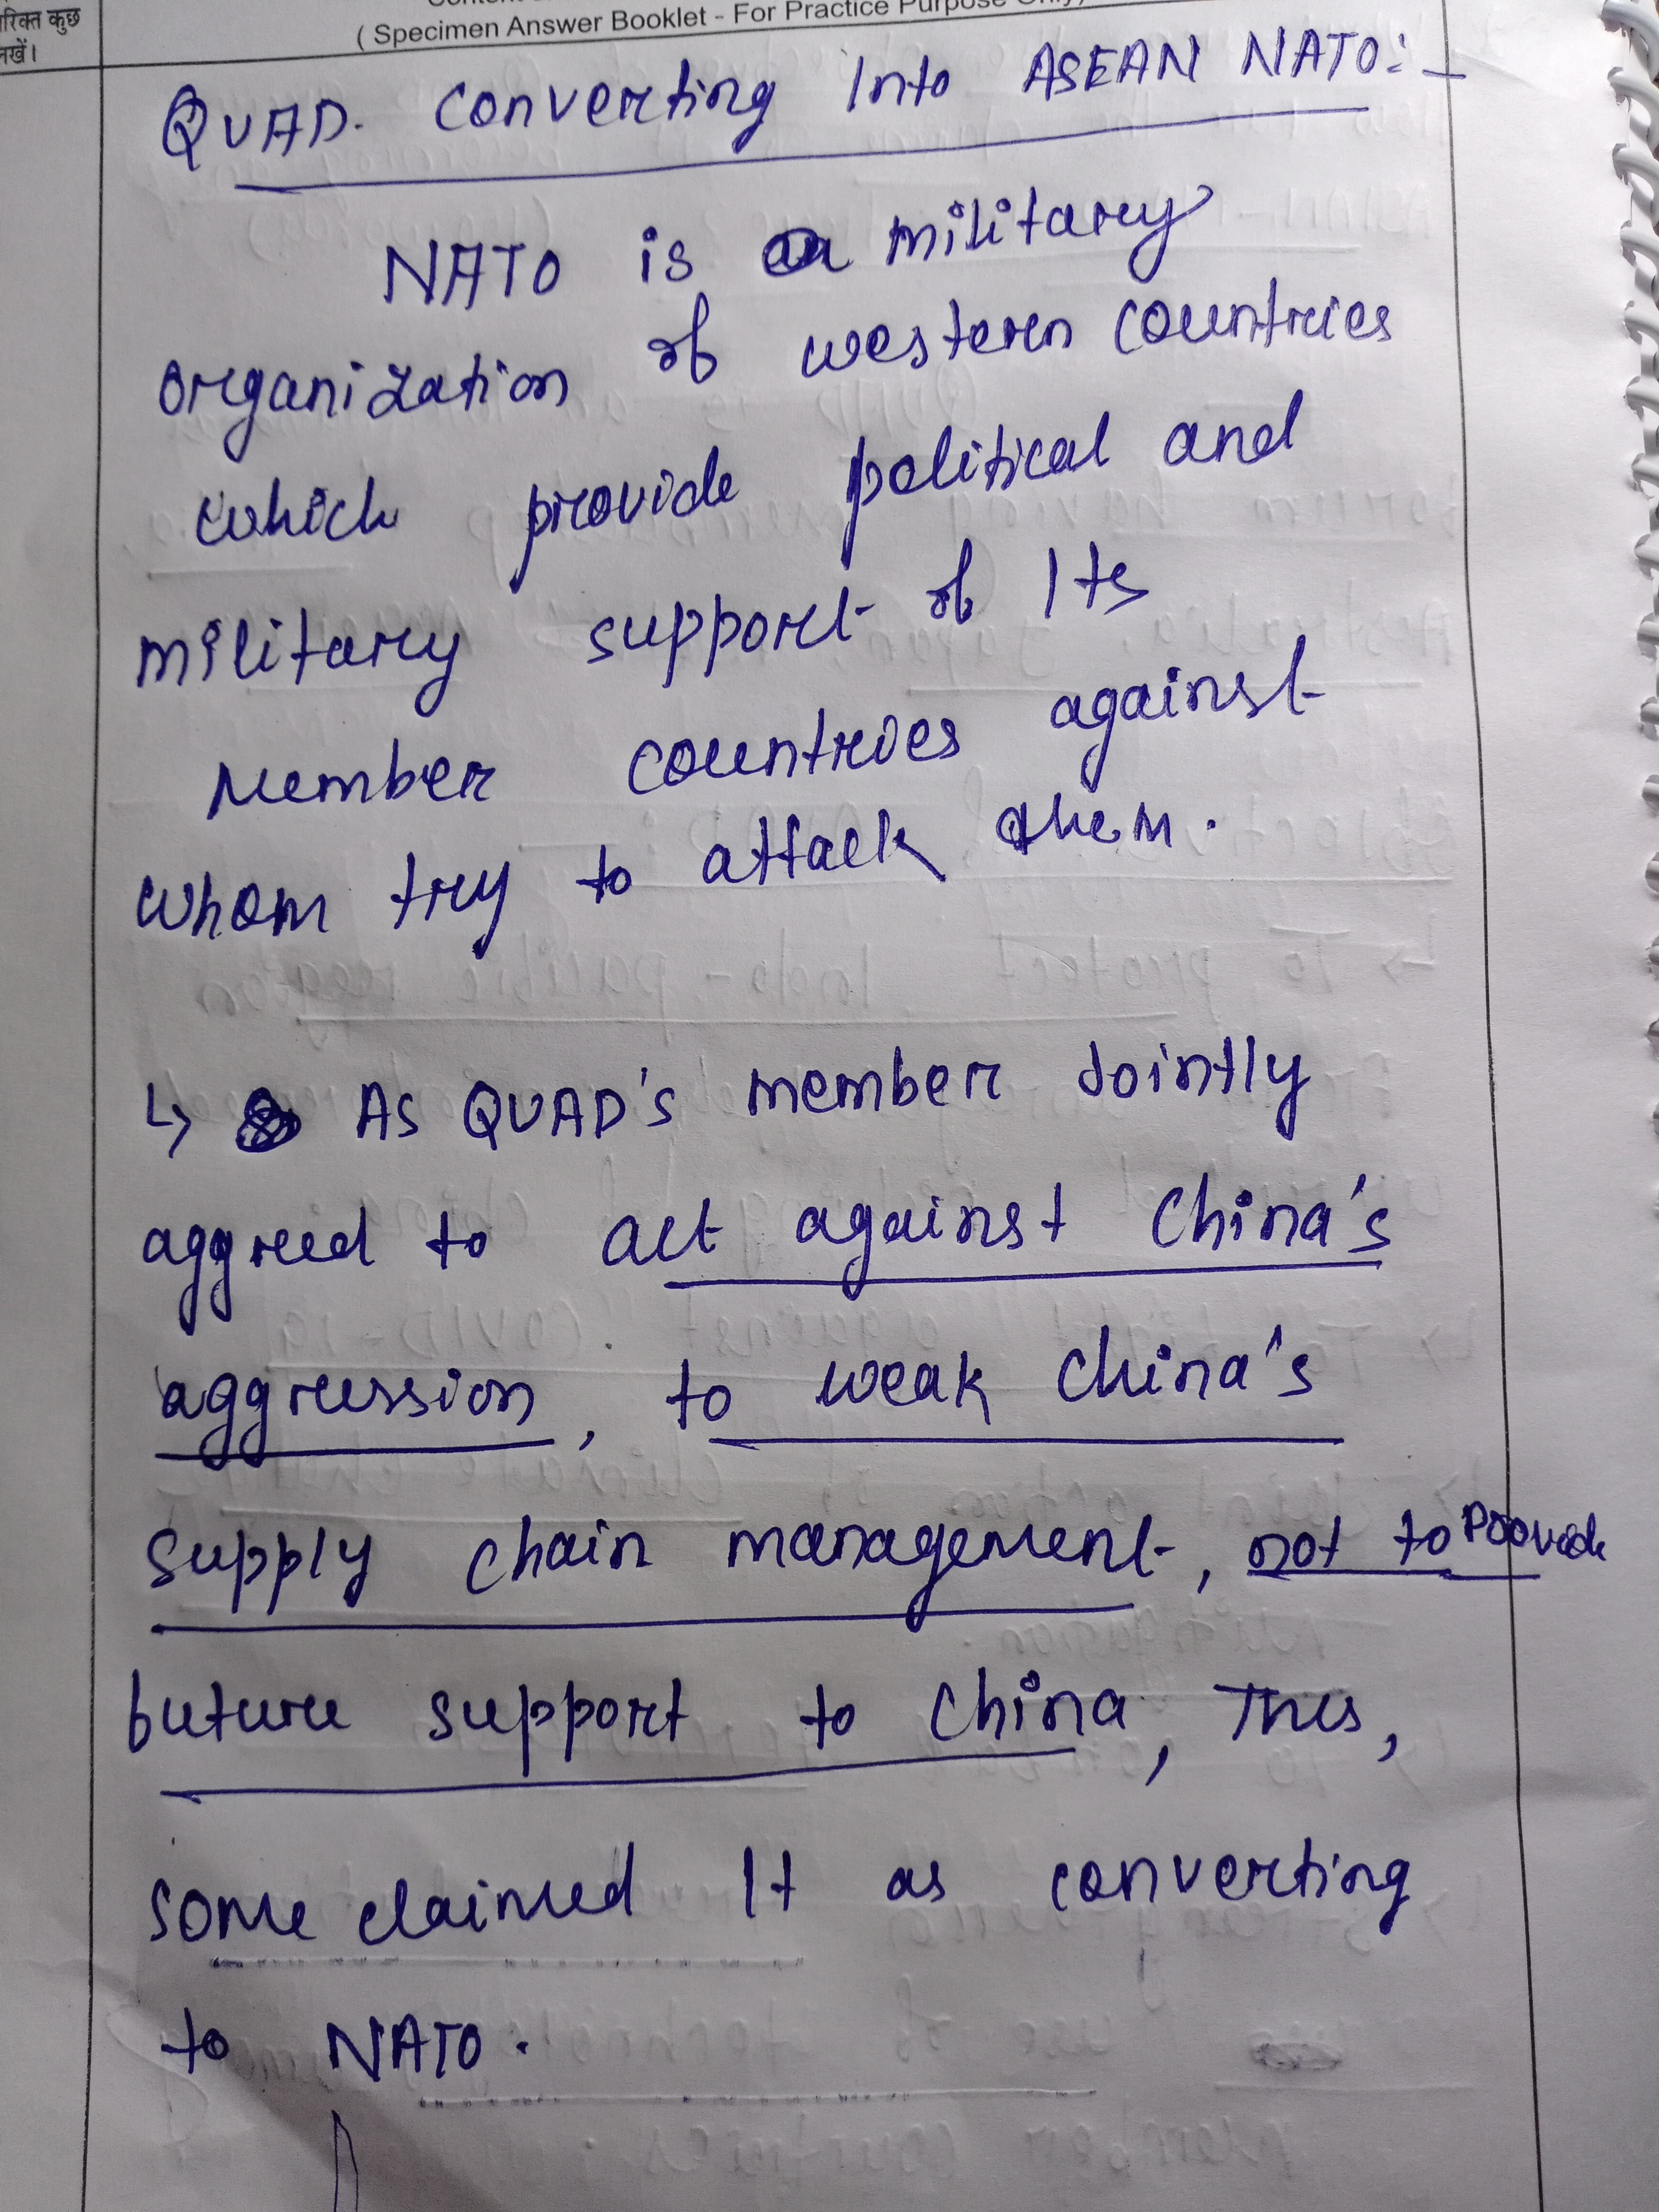 रिक्त कुछ
नखें।
( Specimen Answer Booklet - For Practice Purpose Only)
QUAD. Converting Into ASEAN NATO:-
NATO is a military
organization of western countries
which provide political and
military support of Its
Member countries against
whom try to attack them.
↳ As QUAD's member Jointly
aggreed to act against China's
aggression, to weak China's
supply chain management, not to Provide
future support to China, Thus,
some claimed It as converting
to NATO.